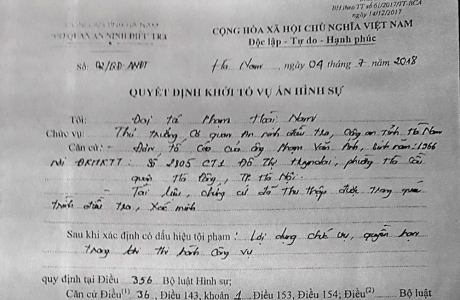 BH theo TT số 61/2017/TT-BCA
ngày 14/12/2017
CÔNG AN TỈNH HÀ NAM
CƠ QUAN AN NINH ĐIỀU TRA
CỘNG HÒA XÃ HỘI CHỦ NGHĨA VIỆT NAM
Độc lập - Tự do - Hạnh phúc
Số: 02/QĐ-ANĐT
Hà Nam, ngày 04 tháng 7 năm 2018
QUYẾT ĐỊNH KHỞI TỐ VỤ ÁN HÌNH SỰ
Tôi: Đại tá Phạm Hoài Nam
Chức vụ: Thủ trưởng, Cơ quan An ninh điều tra, Công an tỉnh Hà Nam
Căn cứ: - Đơn tố cáo của ông Phạm Vân Anh, Sinh năm: 1966
Nơi ĐKHKTT: Số 2805 CT1 Đô Thị Hyundai, phường Hà Cầu
quận Hà Đông, TP. Hà Nội.
- Tài liệu, chứng cứ đã thu thập được trong quá
trình điều tra, xác minh
Sau khi xác định có dấu hiệu tội phạm: Lợi dụng chức vụ, quyền hạn
trong khi thi hành công vụ
quy định tại Điều 356 Bộ luật Hình sự;
Căn cứ Điều(1) 36, Điều 143, khoản 1 Điều 153, Điều 154; Điều(2) Bộ luật